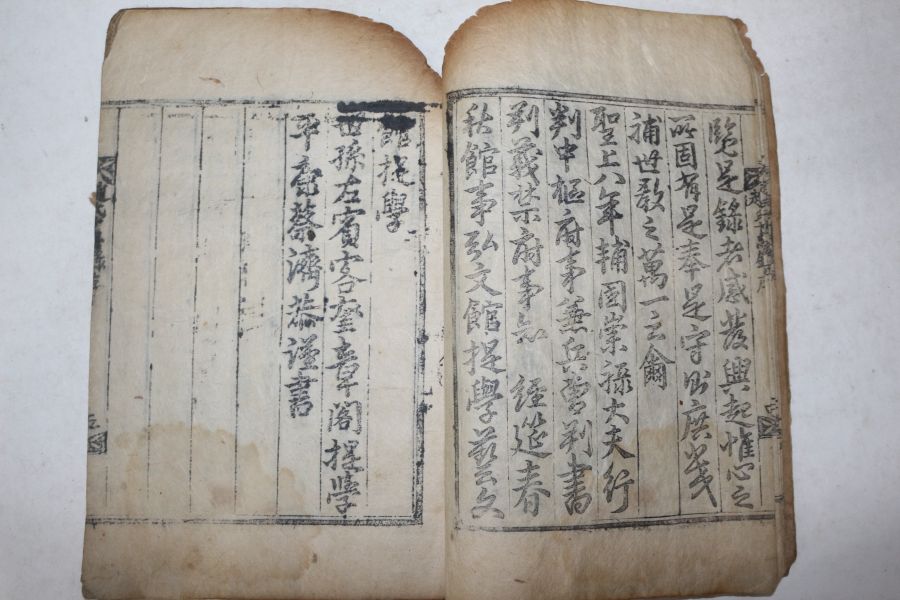 覽是錄者感發興起惟心之
所固有是奉是守則庶幾
補世敎之萬一云爾
聖上八年輔國崇祿大夫行
判中樞府事兼兵曹判書
判義禁府事知 經筵春
秋館事弘文館提學藝文
館提學
世孫左賓客奎章閣提學
平康蔡濟恭謹書